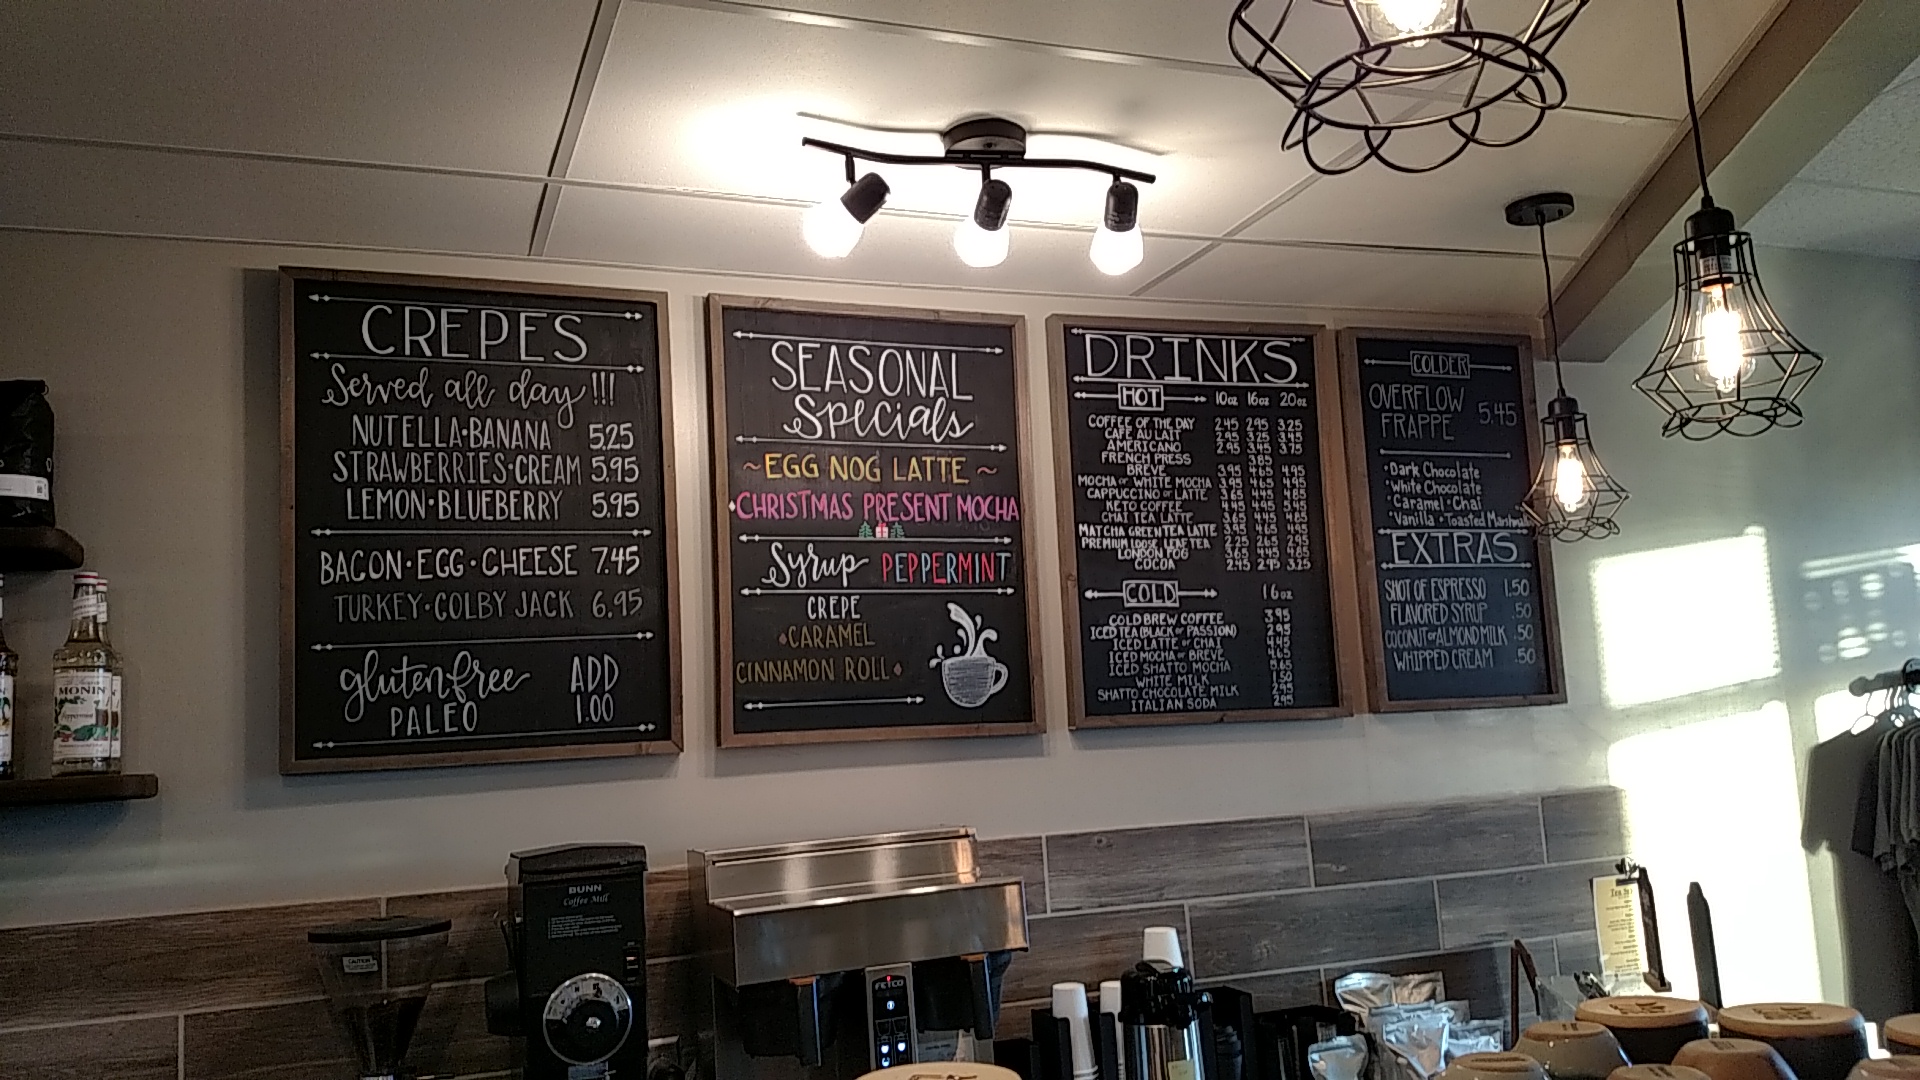 CREPES
Served all day!!!
NUTELLA·BANANA 5.25
STRAWBERRIES·CREAM 5.95
LEMON·BLUEBERRY 5.95
BACON·EGG·CHEESE 7.45
TURKEY·COLBY JACK 6.95
gluten free ADD
PALEO 1.00
SEASONAL
Specials
~EGG NOG LATTE~
CHRISTMAS PRESENT MOCHA
Syrup PEPPERMINT
CREPE
CARAMEL
CINNAMON ROLL
DRINKS
HOT 10oz 16oz 20oz
COFFEE OF THE DAY 2.45 2.95 3.25
CAFE AU LAIT 2.95 3.25 3.45
AMERICANO 2.95 3.45 3.75
FRENCH PRESS 3.85
BREVE 3.95 4.65 4.95
MOCHA or WHITE MOCHA 3.95 4.65 4.95
CAPPUCCINO or LATTE 3.65 4.45 4.85
KETO COFFEE 4.45 4.95 5.45
CHAI TEA LATTE 3.65 4.45 4.85
MATCHA GREEN TEA LATTE 3.95 4.65 4.95
PREMIUM LOOSE LEAF TEA 2.25 2.65 2.95
LONDON FOG 3.65 4.45 4.85
COCOA 2.45 2.95 3.25
COLD 16oz
COLD BREW COFFEE 3.95
ICED TEA (BLACK or PASSION) 2.95
ICED LATTE or CHAI 4.45
ICED MOCHA or BREVE 4.65
ICED SHATTO MOCHA 5.65
WHITE MILK 1.50
SHATTO CHOCOLATE MILK 2.95
ITALIAN SODA 2.95
COLDER
OVERFLOW
FRAPPE 5.45
·Dark Chocolate
·White Chocolate
·Caramel ·Chai
·Vanilla ·Toasted
EXTRAS
SHOT OF ESPRESSO 1.50
FLAVORED SYRUP .50
COCONUT or ALMOND MILK .50
WHIPPED CREAM .50
MONIN
BUNN
Coffee Mill
CAUTION
FETCO